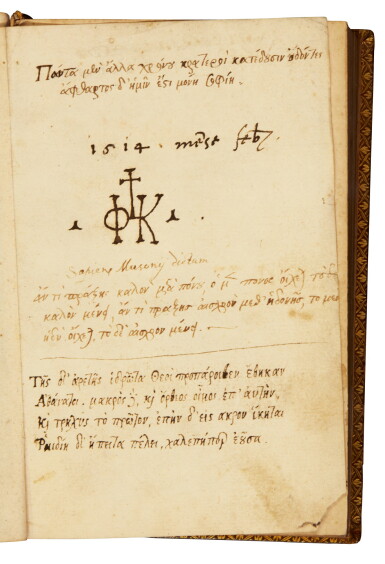 Πάντα μὲν ἄλλα χρόνου κρατεροὶ κατέδουσιν ὀδόντες
ἄφθαρτος δ' ἡμῖν ἐστὶ μόνη σοφίη.
1514 mēse feb
ΦΚ
Musonij dictum
ἄν τι πράξῃς καλὸν μετὰ πόνου, ὁ μ πόνος οἴχεται τὸ
καλὸν μένει, ἄν τι πράξῃς αἰσχρὸν μεθ' ἡδονῆς, τὸ μὲν
ἡδὺ οἴχεται, τὸ δ' αἰσχρὸν μένει.
Τῆς δ' ἀρετῆς ἱδρῶτα θεοὶ προπάροιθεν ἔθηκαν
Ἀθάνατοι. μακρὸς δὲ, καὶ ὄρθιος οἶμος ἐπ' αὐτὴν,
Καὶ τρηχὺς τὸ πρῶτον, ἐπὴν δ' εἰς ἄκρον ἵκηται
Ῥηιδίη δ' ἤπειτα πέλει, χαλεπή περ ἐοῦσα.